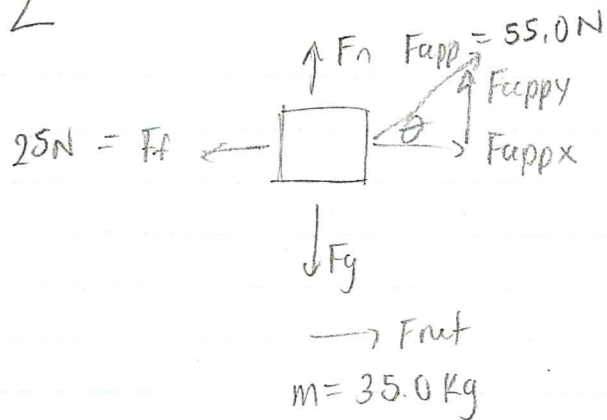 Fn
Fapp = 55.0N
Fappy
25N = Ff
θ
Fappx
Fg
Fnet
m = 35.0 Kg